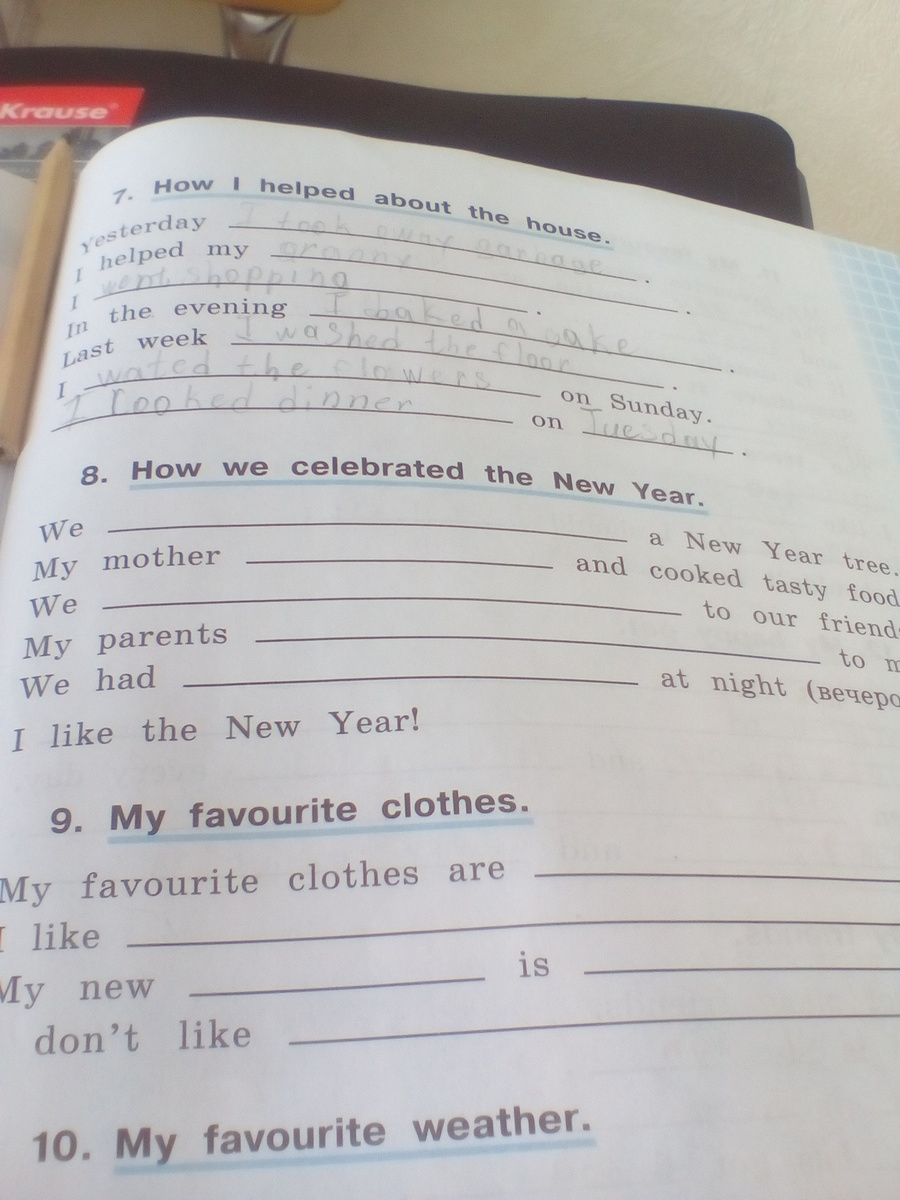 Krause®
7. How I helped about the house.
Yesterday I took away garbage.
I helped my granny.
I went shopping.
In the evening I baked a cake.
Last week I washed the floor.
I wated the flowers on Sunday.
I cooked dinner on Tuesday.
8. How we celebrated the New Year.
We a New Year tree.
My mother and cooked tasty food
We to our friend
My parents to m
We had at night (вечеро
I like the New Year!
9. My favourite clothes.
My favourite clothes are
I like
My new is
don't like
10. My favourite weather.